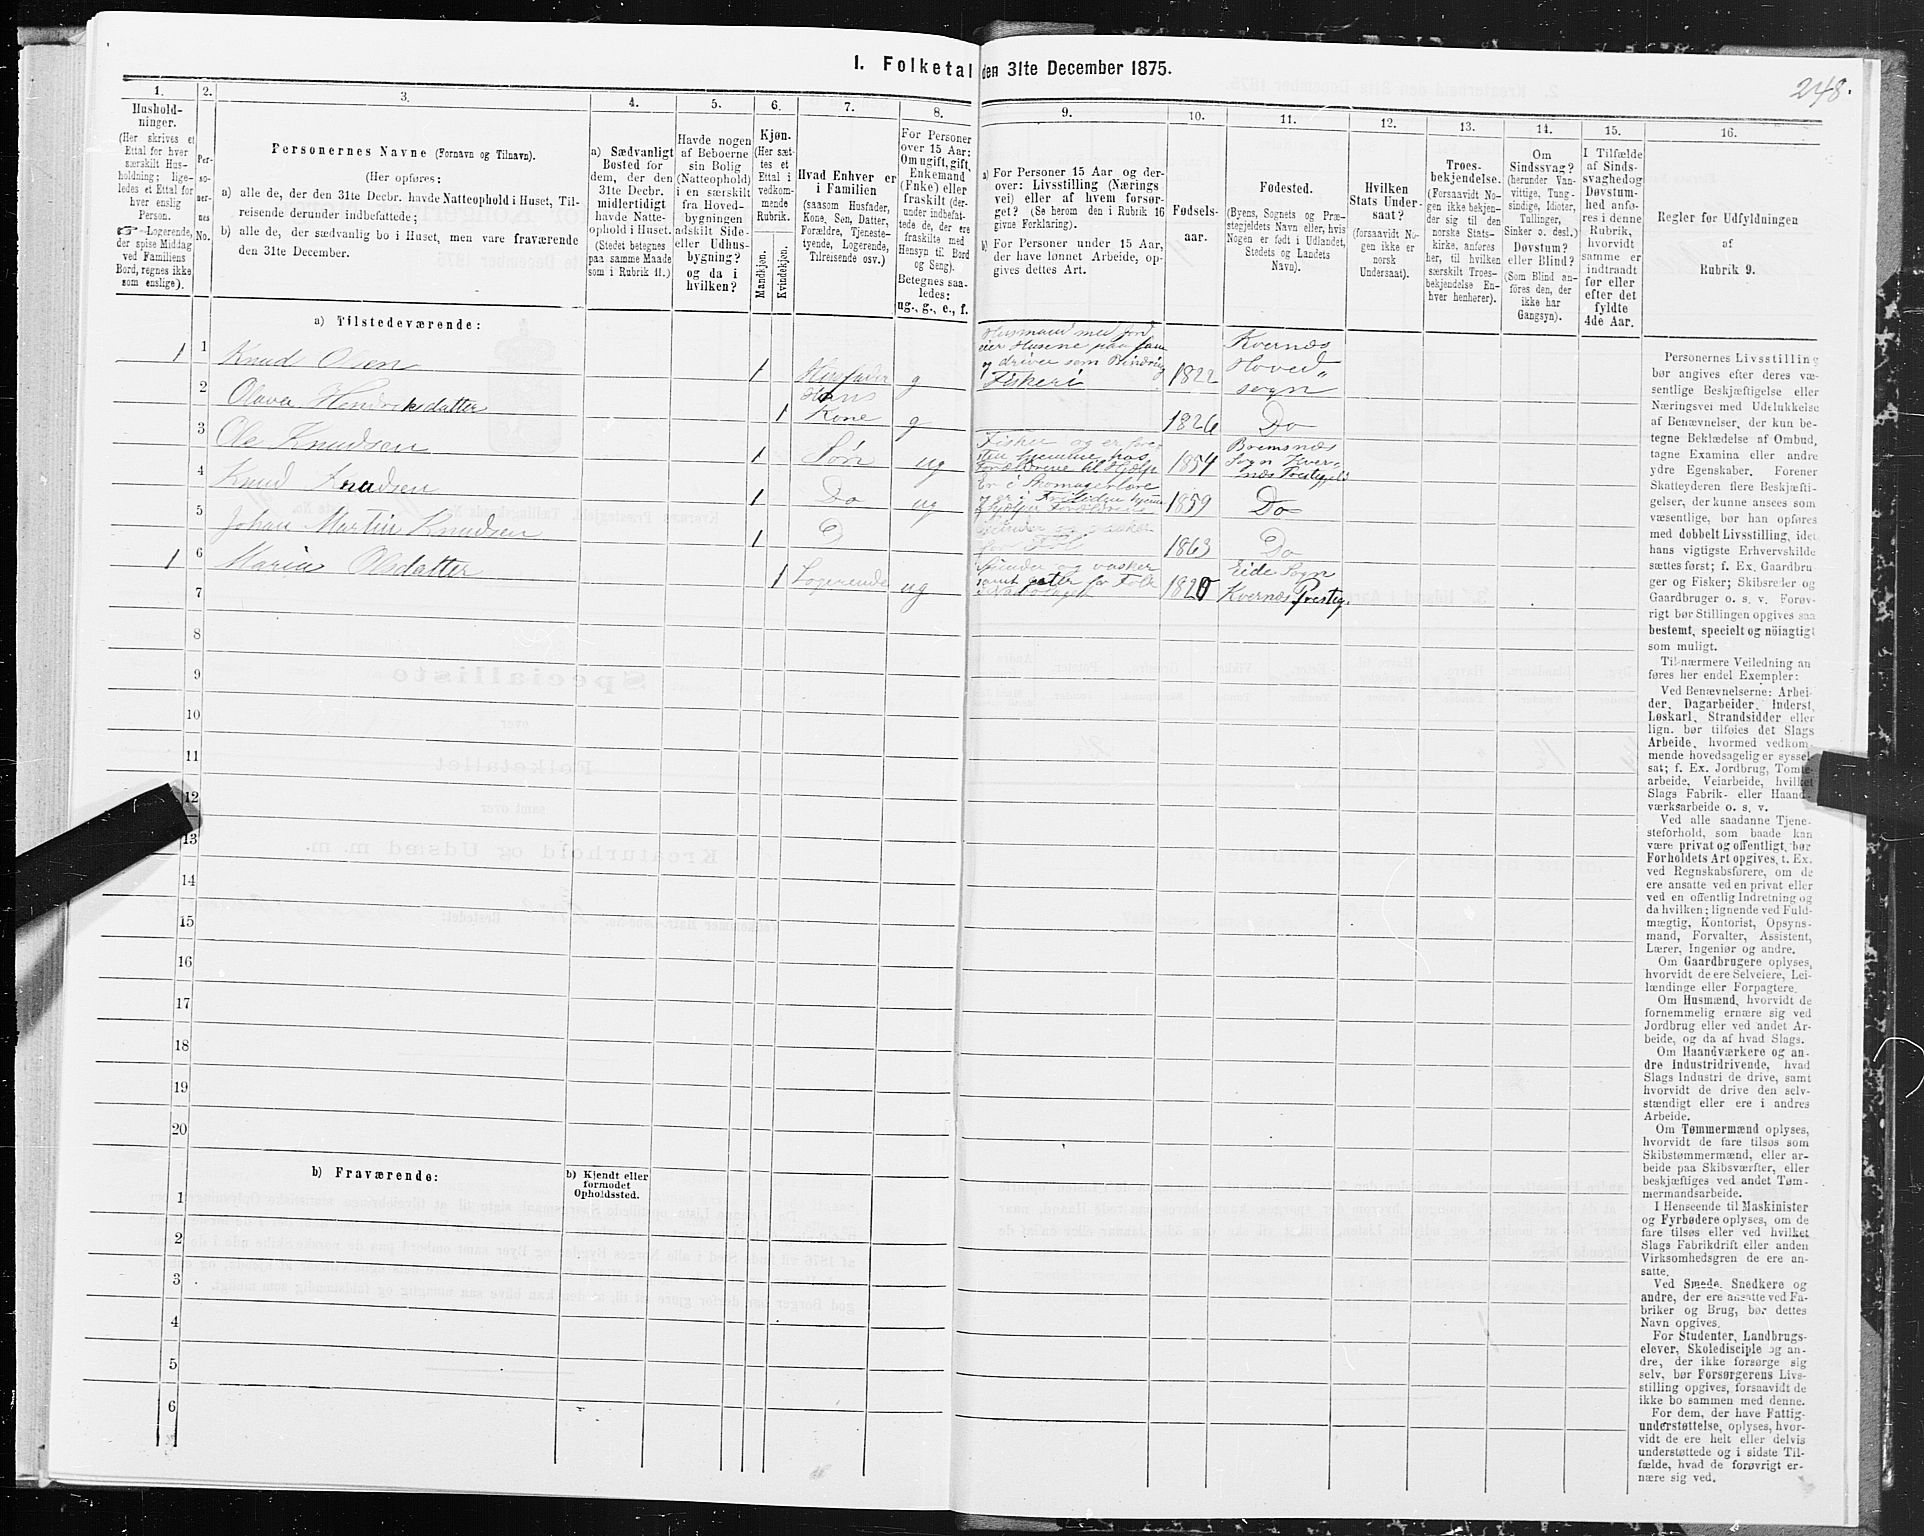 248.
1. Folketal den 31te December 1875.
1.
Hushold-
ninger.
(Her skrives et
Ettal for hver
særskilt Hus-
holdning; lige-
ledes et Ettal for
hver enslig
Person.
☞ Logerende,
der spise Middag
ved Familiens
Bord, regnes ikke
som enslige).
2.
Per-
so-
ner-
nes
No.
3.
Personernes Navne (Fornavn og Tilnavn).
(Her opføres:
a) alle de, der den 31te Decbr. havde Natteophold i Huset, Til-
reisende derunder indbefattede;
b) alle de, der sædvanlig bo i Huset, men vare fraværende
den 31te December.
4.
a) Sædvanligt
Bosted for
dem, der den
31te Decbr.
midlertidigt
havde Natte-
ophold i Huset.
(Stedet betegnes
paa samme Maade
som i Rubrik 11.)
5.
Havde nogen
af Beboerne
sin Bolig
(Natteophold)
i en særskilt
fra Hoved-
bygningen
adskilt Side-
eller Udhus-
bygning?
og da i
hvilken?
6.
Kjøn.
(Her sæt-
tes et
Ettal i
vedkom-
mende
Rubrik.
Mandkjøn.
Kvindekjøn.
7.
Hvad Enhver er
i Familien
(saasom Husfader,
Kone, Søn, Datter,
Forældre, Tjeneste-
tyende, Logerende,
Tilreisende osv.)
8.
For Personer
over 15 Aar:
Om ugift, gift,
Enkemand
(Enke) eller
fraskilt (der-
under indbefat-
tede de, der ere
fraskilte med
Hensyn til Bord
og Seng).
Betegnes saa-
ledes:
ug., g., e., f.
9.
a) For Personer 15 Aar og der-
over: Livsstilling (Nærings
vei) eller af hvem forsør-
get? (Se herom den i Rubrik 16
givne Forklaring).
b) For Personer under 15 Aar,
der have lønnet Arbeide, op-
gives dettes Art.
10.
Fødsels-
aar.
11.
Fødested.
(Byens, Sognets og Præ-
stegjeldets Navn eller, hvis
Nogen er født i Udlandet,
Stedets og Landets
Navn).
12.
Hvilken
Stats Under-
saat?
(forsaavidt No-
gen ikke er
norsk
Undersaat).
13.
Troes-
bekjendelse.
(Forsaavidt No-
gen ikke bekjen-
der sig til den
norske Stats-
kirke, anføres
her, til hvilken
særskilt Troes-
bekjendelse En-
hver henhører).
14.
Om
Sindssvag?
(herunder Van-
vittige, Tung-
sindige, Idioter,
Tullinger,
Sinker o. desl.)
Døvstum?
eller Blind?
(Som Blind an-
føres den, der
ikke har
Gangsyn).
15.
I Tilfælde
af Sinds-
svaghedog
Døvstum-
hed anfø-
res i denne
Rubrik,
hvorvidt
samme er
indtraadt
før eller
efter det
fyldte
4de Aar.
16.
Regler før Udfyldningen
af
Rubrik 9.
a) Tilstedeværende:
1 1 Knud Olsen 1 Husfader g Husmand med Jord eier Husene paa samme og driver som Binæring Fiskeri 1822 Kvernæs Hoveds sogn
2 Olava Hendriksdatter 1 Hans Kone g 1826 Do
3 Ole Knudsen 1 Søn ug Fisker og er hjemme hos Forældrene til Hjælp 1854 Bremsnæs Sogn Kvernæs Prestegjeld
4 Knud Knudsen 1 Do ug Er i Skomagerlære og er i Fritiden hjemme hjælper Forældrene 1859 Do
5 Johan Martin Knudsen 1 D 1863 Do
1 6 Maria Olsdatter 1 Logerende ug Spinder og vasker samt for Folk 1820 Eide Sogn Kvernæs Presteg.
7
8
9
10
11
12
13
14
15
16
17
18
19
20
b) Fraværende:
b) Kjendt eller
formodet
Opholdssted.
1
2
3
4
5
6
Personernes Livsstilling
bør angives efter deres væ-
sentlige Beskjæftigelse eller
Næringsvei med Udelukkelse
af Benævnelser, der kun be-
tegne Beklædelse af Ombud,
tagne Examina eller andre
ydre Egenskaber. Forener
Skatteyderen flere Beskjæfti-
gelser, der kunne ansees som
væsentlige, bør han opføres
med dobbelt Livsstilling, idet
hans vigtigste Erhvervskilde
sættes først; f. Ex. Gaardbru
ger og Fisker; Skibsreder og
Gaardbruger o. s. v. Forøv-
rigt bør Stillingen opgives saa
bestemt, specielt og nöiagtigt
som muligt.
Til nærmere Veiledning an
føres her endel Exempler:
Ved Benævnelserne: Arbei-
der, Dagarbeider, Inderst,
Løskarl, Strandsidder eller
lign. bør tilføies det Slags
Arbeide, hvormed vedkom-
mende hovedsagelig er syssel-
sat; f. Ex. Jordbrug, Tomte-
arbeide, Veiarbeide, hvilket
Slags Fabrik- eller Haand-
værksarbeide o. s. v.
Ved alle saadanne Tjene-
steforhold, som baade kan
være privat og offentligt, bør
Forholdets Art opgives, t. Ex.
ved Regnskabsførere, om de
ere ansatte ved en privat eller
ved en offentlig Indretning og
da hvilken; lignende ved Fuld-
mægtig, Kontorist, Opsyns-
mand, Forvalter, Assistent,
Lærer, Ingeniør og andre.
Om Gaardbrugere oplyses,
hvorvidt de ere Selveiere, Lei-
lændinge eller Forpagtere.
Om Husmænd, hvorvidt de
fornemmelig ernære sig ved
Jordbrug eller ved andet Ar-
beide, og da af hvad Slags.
Om Haandværkere og an-
dre Industridrivende, hvad
Slags Industri de drive, samt
hvorvidt de drive den selv-
stændigt eller ere i andres
Arbeide.
Om Tømmermænd oplyses,
hvorvidt de fare tilsøs som
Skibstømmermænd, eller ar-
beide paa Skibsværfter, eller
beskjæftiges ved andet Tøm-
mermandsarbeide.
I Henseende til Maskinister
og Fyrbødere oplyses, om de
fare tilsøs eller ved hvilket
Slags Fabrikdrift eller anden
Virksomhedsgren de ere an-
satte.
Ved Smede, Snedkere og
andre, der ere ansatte ved Fa-
briker og Brug, bør dettes
Navn opgives.
For Studenter, Landbrugs-
elever, Skoledisciple og an-
dre, der ikke forsørge sig
selv, bør Forsørgerens Livs-
stilling opgives, forsaavidt de
ikke bo sammen med denne.
For dem, der have Fattig-
understøttelse, oplyses, hvor-
vidt de ere helt eller delvis
understøttede og i sidste Til-
fælde, hvad de forøvrigt er-
nære sig ved.